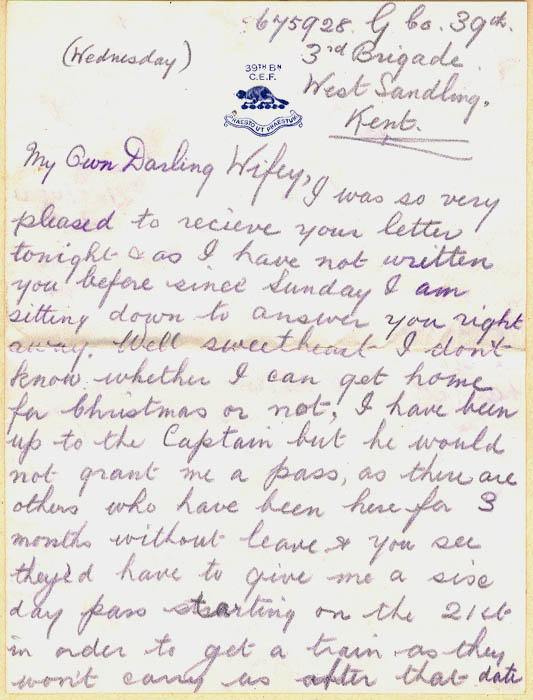 675928. G Co. 39th.
(Wednesday)
3rd Brigade
39TH BN
C.E.F.
West Sandling,
PRAESTO UT PRAESTUM
Kent.
My Own Darling Wifey, I was so very
pleased to recieve your letter
tonight & as I have not written
you before since Sunday I am
sitting down to answer you right
away. Well sweetheart I don't
know whether I can get home
for Christmas or not, I have been
up to the Captain but he would
not grant me a pass, as there are
others who have been here for 3
months without leave & you see
they'd have to give me a six
day pass starting on the 21st
in order to get a train as they
won't carry us after that date